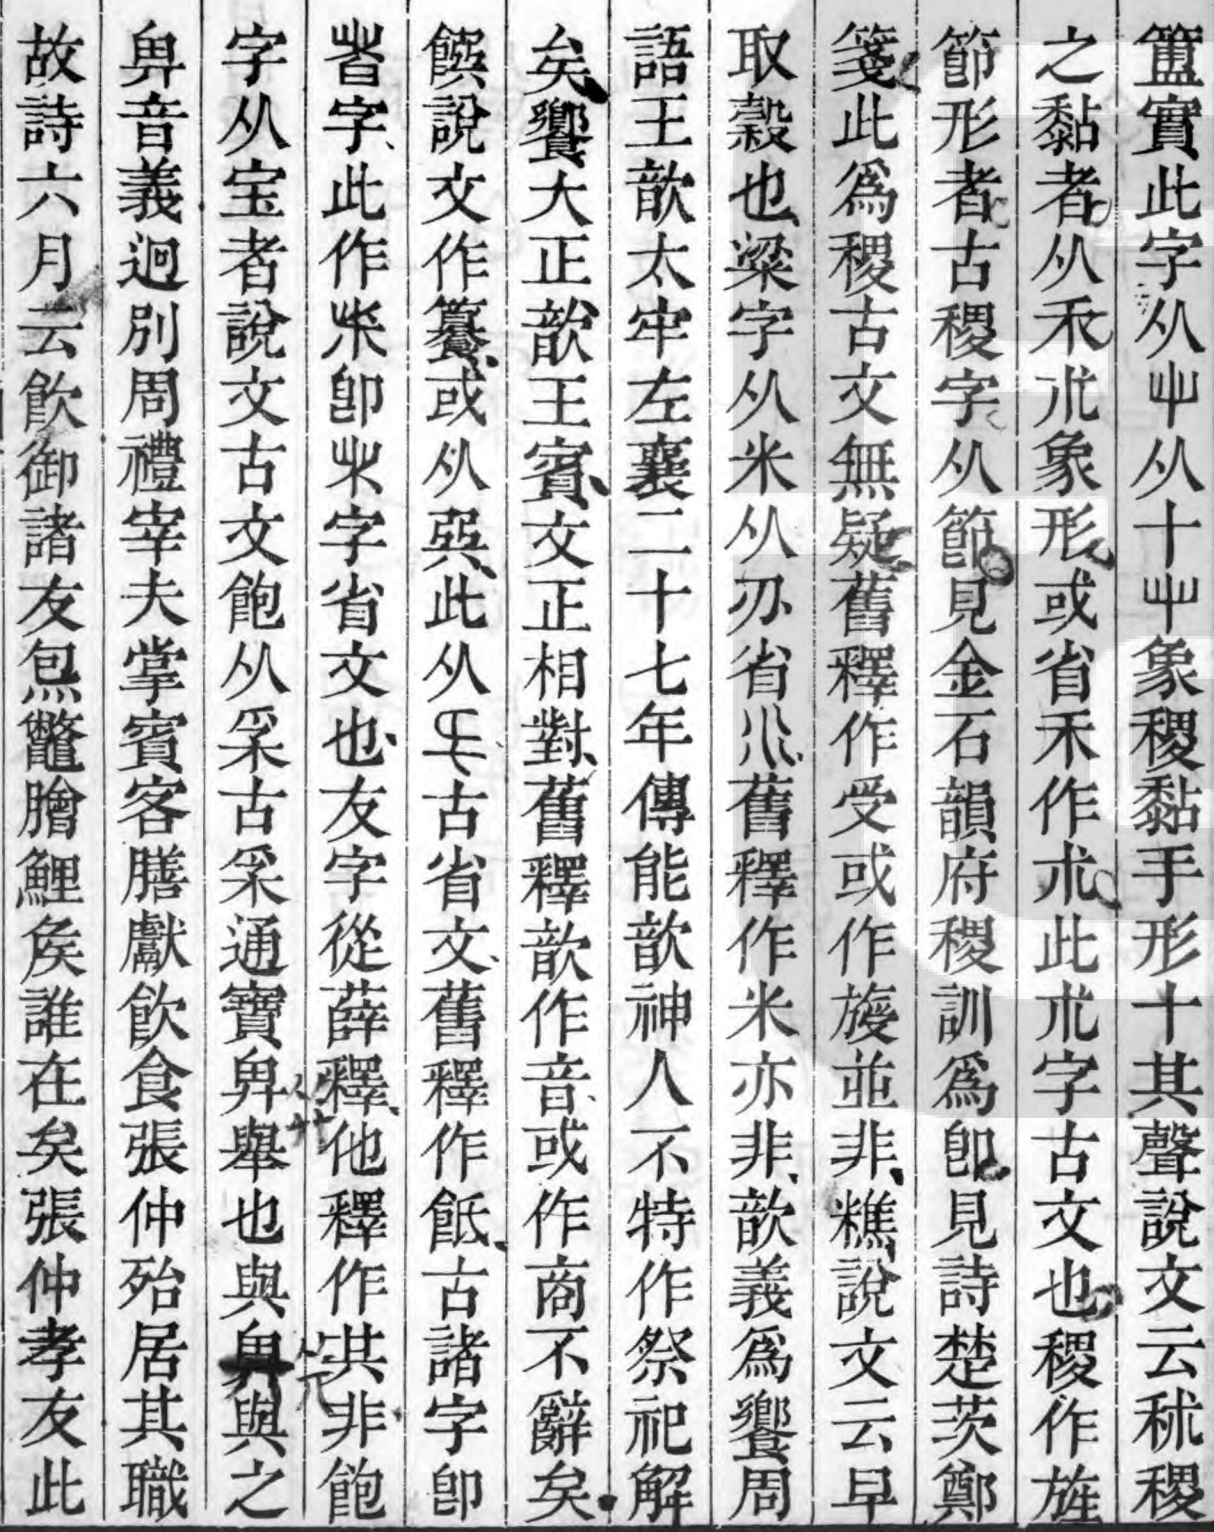 簠實此字从屮从十屮象稷黏手形十其聲說文云秫稷
之黏者从禾朮象形或省禾作朮此朮字古文也稷作㫋
節形者古稷字从節見金石韻府稷訓爲卽見詩楚茨鄭
箋此爲稷古文無疑舊釋作受或作㫋並非糕說文云早
取穀也粱字从米从刅省舊釋作米亦非歆義爲饗周
語王歆太牢左襄二十七年傳能歆神人不特作祭祀解
矣饗大正歆王賓文正相對舊釋歆作音或作商不辭矣
饌說文作籑或从巽此从古省文舊釋作飫古諸字卽
字此作卽字省文也友字從薛釋他釋作其非飽
字从宝者說文古文飽从采古采通寶舁舉也與舁與之
舁音義迥別周禮宰夫掌賓客膳獻飲食張仲殆居其職
故詩六月云飲御諸友炰鼈膾鯉矦誰在矣張仲孝友此